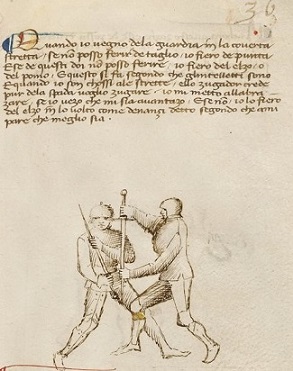 36
Quando io vegno de la guardia in la coverta
stretta / se non posso ferir de taglio / io fiero de punta
E se de questi doi non posso ferire / io fiero del elzo / o
del pomo / E questo si fa segondo che gl'intelletti sono
E quando io son chossi ale strette / e llo zugador crede
pur de la spada voglio zugare / io mi metto all abra
zare / se io vezo che mi sia avantazo / E se non / io lo fiero
del elzo in lo volto come denanzi detto segondo che a mi
pare che meglio sia